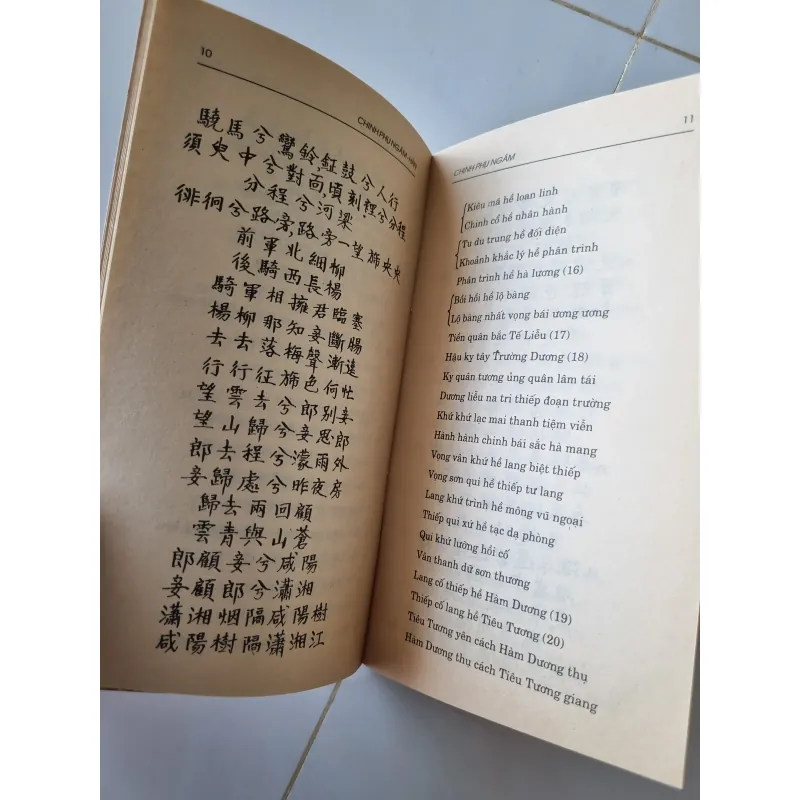 10
CHINH PHỤ NGÂM
驍馬兮鸞鈴,鉦鼓兮人行
須臾中兮對面,頃刻裡兮分程
分程兮河梁
徘徊兮路旁,路旁一望旆央央
前軍北細柳
後騎西長楊
騎軍相擁君臨塞
楊柳那知妾斷腸
去去落梅聲漸遠
行行征旆色何忙
望雲去兮郎別妾
望山歸兮妾思郎
郎去程兮濛雨外
妾歸處兮昨夜房
歸去兩回顧
雲青與山蒼
郎顧妾兮咸陽
妾顧郎兮瀟湘
瀟湘烟隔咸陽樹
咸陽樹隔瀟湘江
11
CHINH PHỤ NGÂM
Kiêu mã hề loan linh
Chinh cổ hề nhân hành
Tu du trung hề đối diện
Khoảnh khắc lý hề phân trình
Phân trình hề hà lương (16)
Bồi hồi hề lộ bàng
Lộ bàng nhất vọng bái ương ương
Tiền quân bắc Tế Liễu (17)
Hậu kỵ tây Trường Dương (18)
Kỵ quân tương ủng quân lâm tái
Dương liễu na tri thiếp đoạn trường
Khứ khứ lạc mai thanh tiệm viễn
Hành hành chinh bái sắc hà mang
Vọng vân khứ hề lang biệt thiếp
Vọng sơn qui hề thiếp tư lang
Lang khứ trình hề mông vũ ngoại
Thiếp qui xứ hề tạc dạ phòng
Qui khứ lưỡng hồi cố
Vân thanh dữ sơn thương
Lang cố thiếp hề Hàm Dương (19)
Thiếp cố lang hề Tiêu Tương (20)
Tiêu Tương yên cách Hàm Dương thụ
Hàm Dương thụ cách Tiêu Tương giang